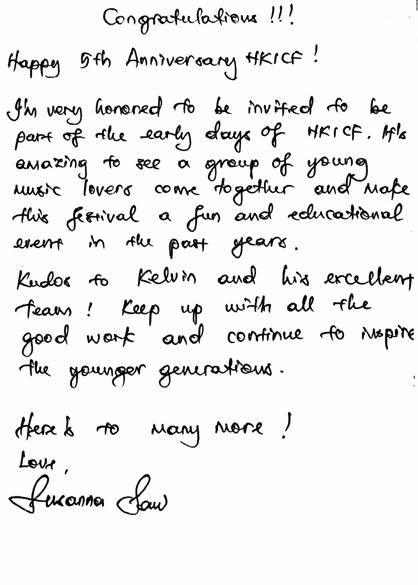 Congratulations !!!
Happy 5th Anniversary HKICF !
I'm very honored to be invited to be
part of the early days of HKICF. It's
amazing to see a group of young
music lovers come together and make
this festival a fun and educational
event in the past years.
Kudos to Kelvin and his excellent
Team! Keep up with all the
good work and continue to inspire
the younger generations.
Here's to many more !
Love,
Susanna Saw